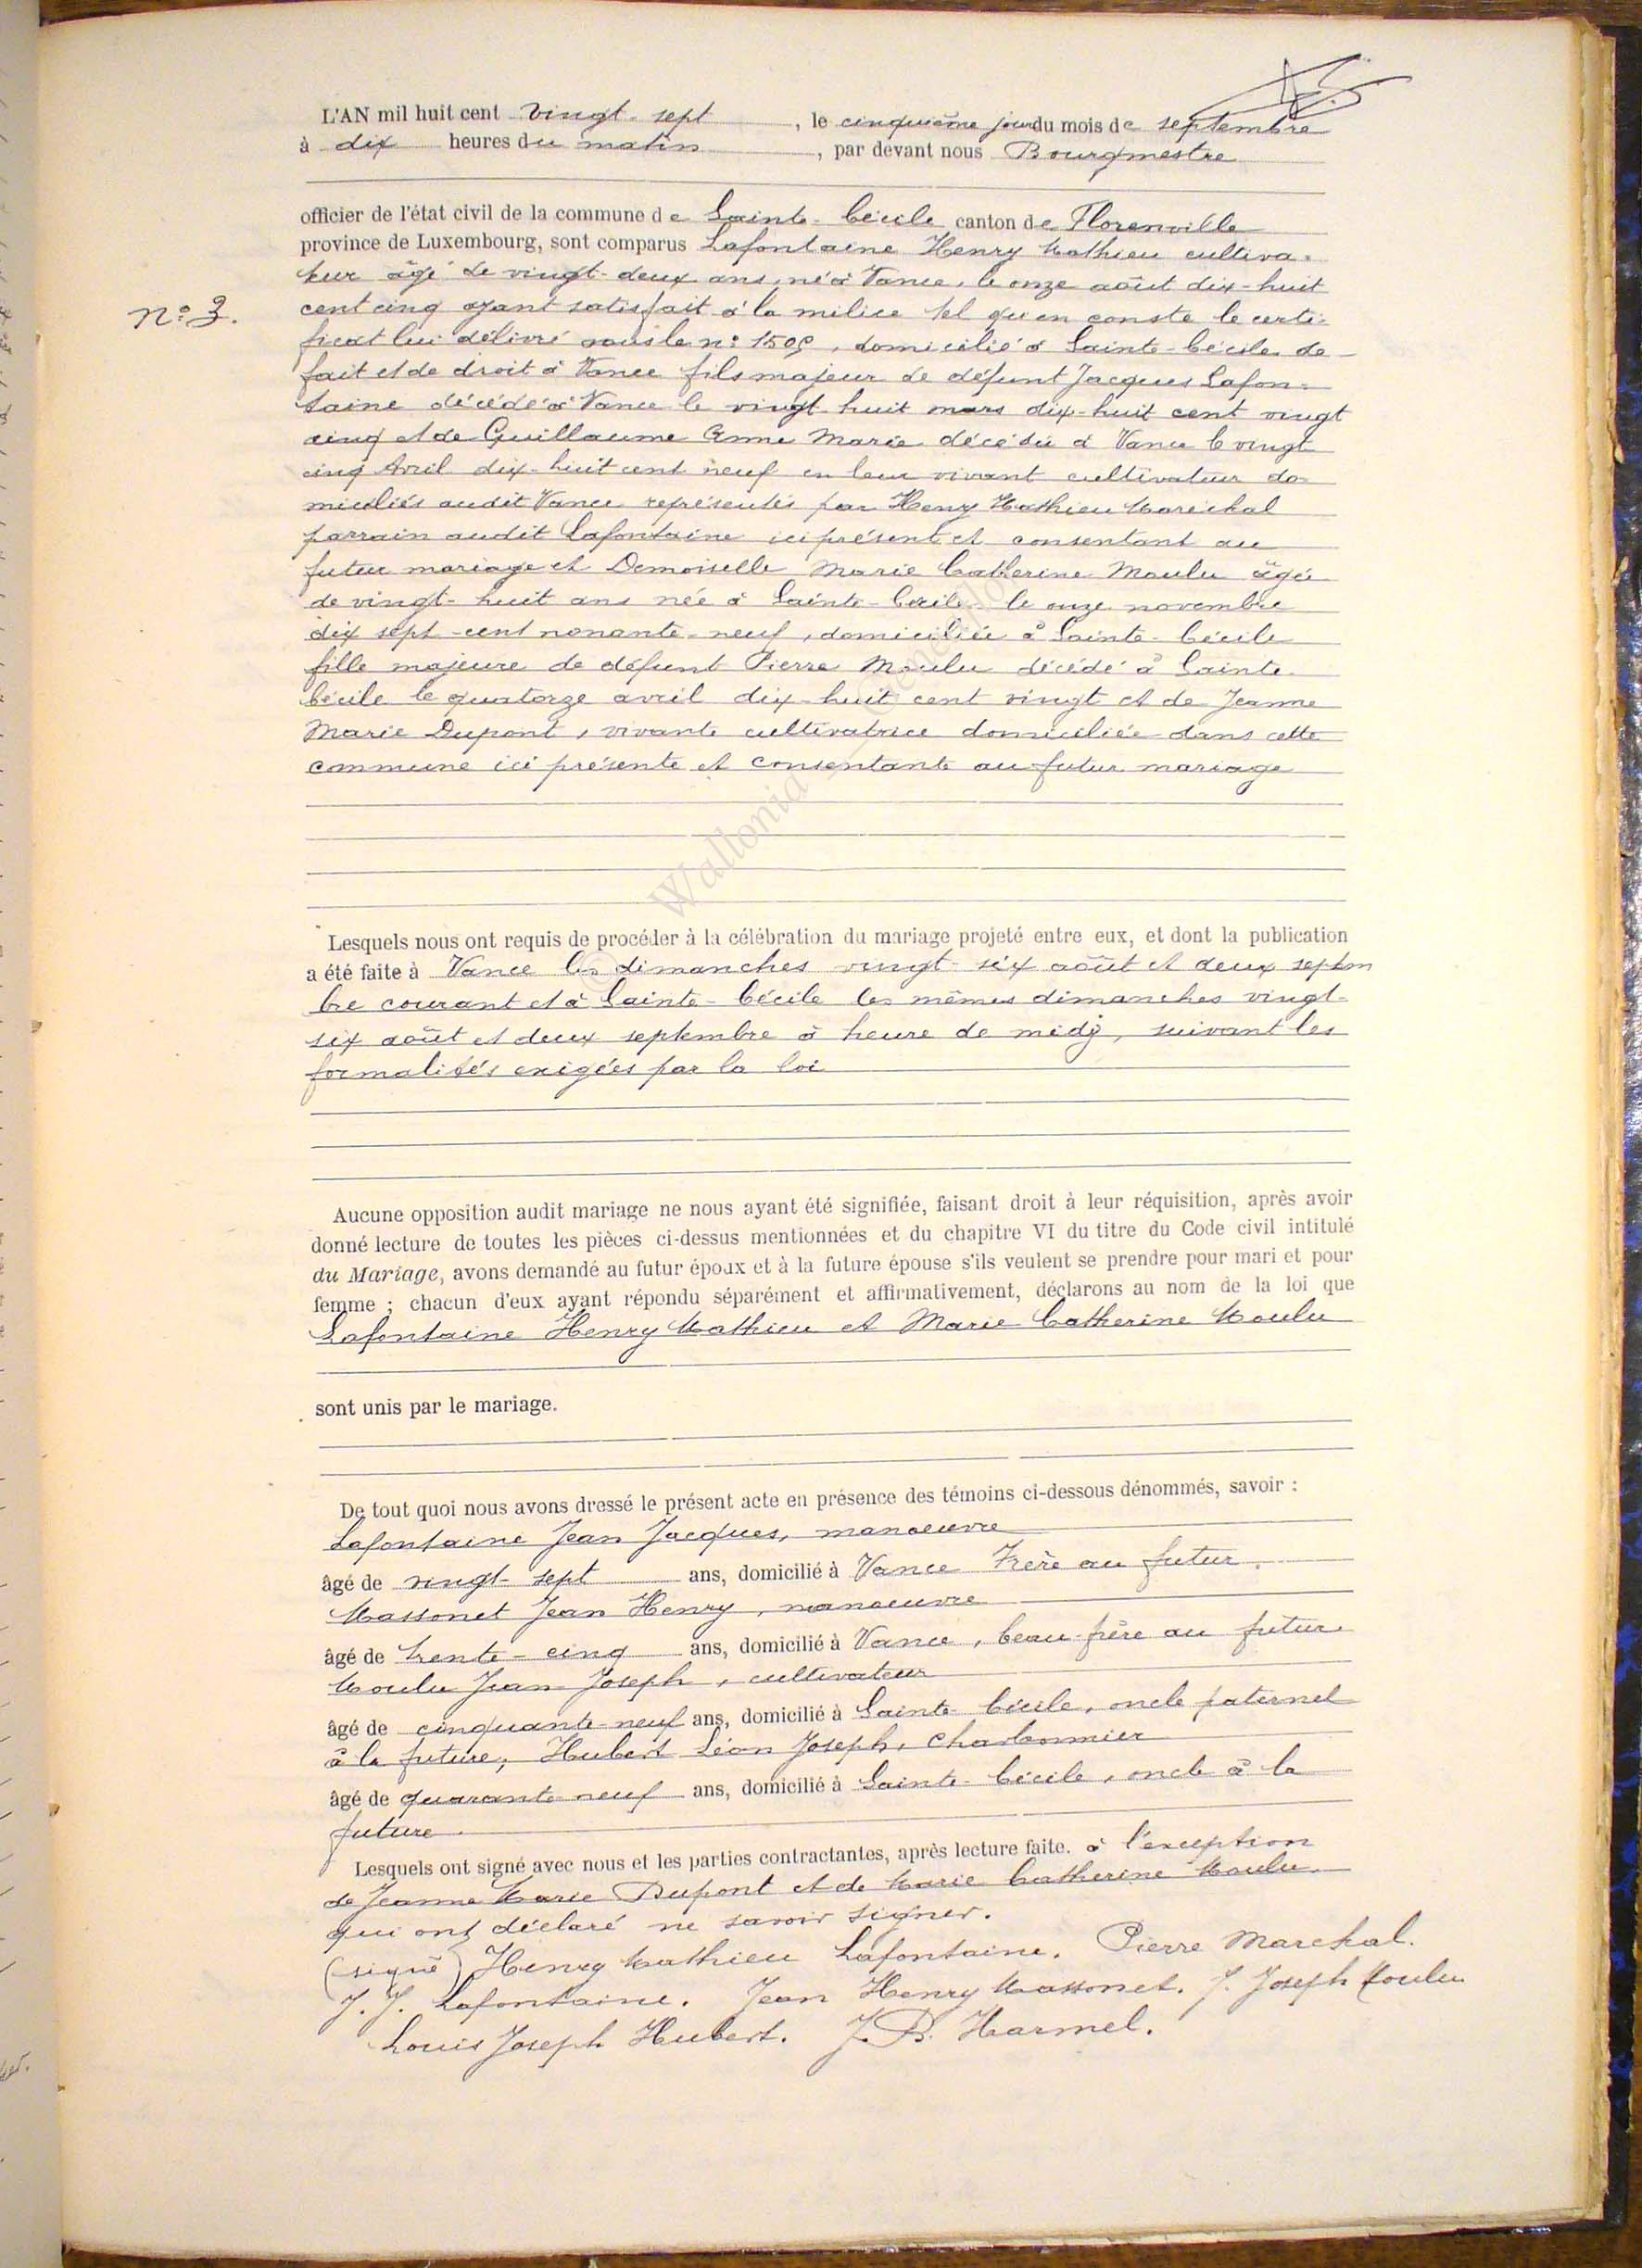 L'AN mil huit cent vingt-sept, le cinquième jour du mois de septembre
à dix heures du matin, par devant nous Bourgmestre
officier de l'état civil de la commune de Sainte-Cécile canton de Florenville
province de Luxembourg, sont comparus Lafontaine Henry Mathieu cultiva-
teur âgé de vingt-deux ans, né à Vance, le onze août dix-huit
N° 3.
cent cinq ayant satisfait à la milice tel qu'en conste le certi-
ficat lui délivré sous le n° 1509, domicilié à Sainte-Cécile de
fait et de droit à Vance fils majeur de défunt Jacques Lafon-
taine décédé à Vance le vingt-huit mars dix-huit cent vingt
cinq et de Guillaume Anne Marie décédée à Vance le vingt
cinq Avril dix-huit cent neuf en leur vivant cultivateur do-
miciliés audit Vance représentés par Henry Mathieu Maréchal
parrain audit Lafontaine ici présent et consentant au
futur mariage et Demoiselle Marie Catherine Moulu âgée
de vingt-huit ans née à Sainte-Cécile le onze novembre
dix sept-cent nonante-neuf, domiciliée à Sainte-Cécile
fille majeure de défunt Pierre Moulu décédé à Sainte
Cécile le quatorze avril dix-huit cent vingt et de Jeanne
Marie Dupont, vivante cultivatrice domiciliée dans cette
commune ici présente et consentante au futur mariage
Wallonia
Lesquels nous ont requis de procéder à la célébration du mariage projeté entre eux, et dont la publication
a été faite à Vance les dimanches vingt-six août et deux septem
bre courant et à Sainte-Cécile les mêmes dimanches vingt-
six août et deux septembre à heure de midi, suivant les
formalités exigées par la loi
Aucune opposition audit mariage ne nous ayant été signifiée, faisant droit à leur réquisition, après avoir
donné lecture de toutes les pièces ci-dessus mentionnées et du chapitre VI du titre du Code civil intitulé
du Mariage, avons demandé au futur époux et à la future épouse s'ils veulent se prendre pour mari et pour
femme ; chacun d'eux ayant répondu séparément et affirmativement, déclarons au nom de la loi que
Lafontaine Henry Mathieu et Marie Catherine Moulu
sont unis par le mariage.
De tout quoi nous avons dressé le présent acte en présence des témoins ci-dessous dénommés, savoir :
Lafontaine Jean Jacques, manoeuvre
âgé de vingt-sept ans, domicilié à Vance frère au futur.
Massonet Jean Henry, manoeuvre
âgé de trente-cinq ans, domicilié à Vance, beau-frère au futur.
Moulu Jean Joseph, cultivateur
âgé de cinquante-neuf ans, domicilié à Sainte-Cécile, oncle paternel
à la future, Hubert Léon Joseph, charbonnier
âgé de quarante neuf ans, domicilié à Sainte-Cécile, oncle à la
future.
Lesquels ont signé avec nous et les parties contractantes, après lecture faite. à l'exception
de Jeanne Marie Dupont et de Marie Catherine Moulu
qui ont déclaré ne savoir signer.
(signé) Henry Mathieu Lafontaine. Pierre Marchal.
J. J. Lafontaine. Jean Henry Massonet. J. Joseph Moulu
Louis Joseph Hubert. J. B. Harmel.